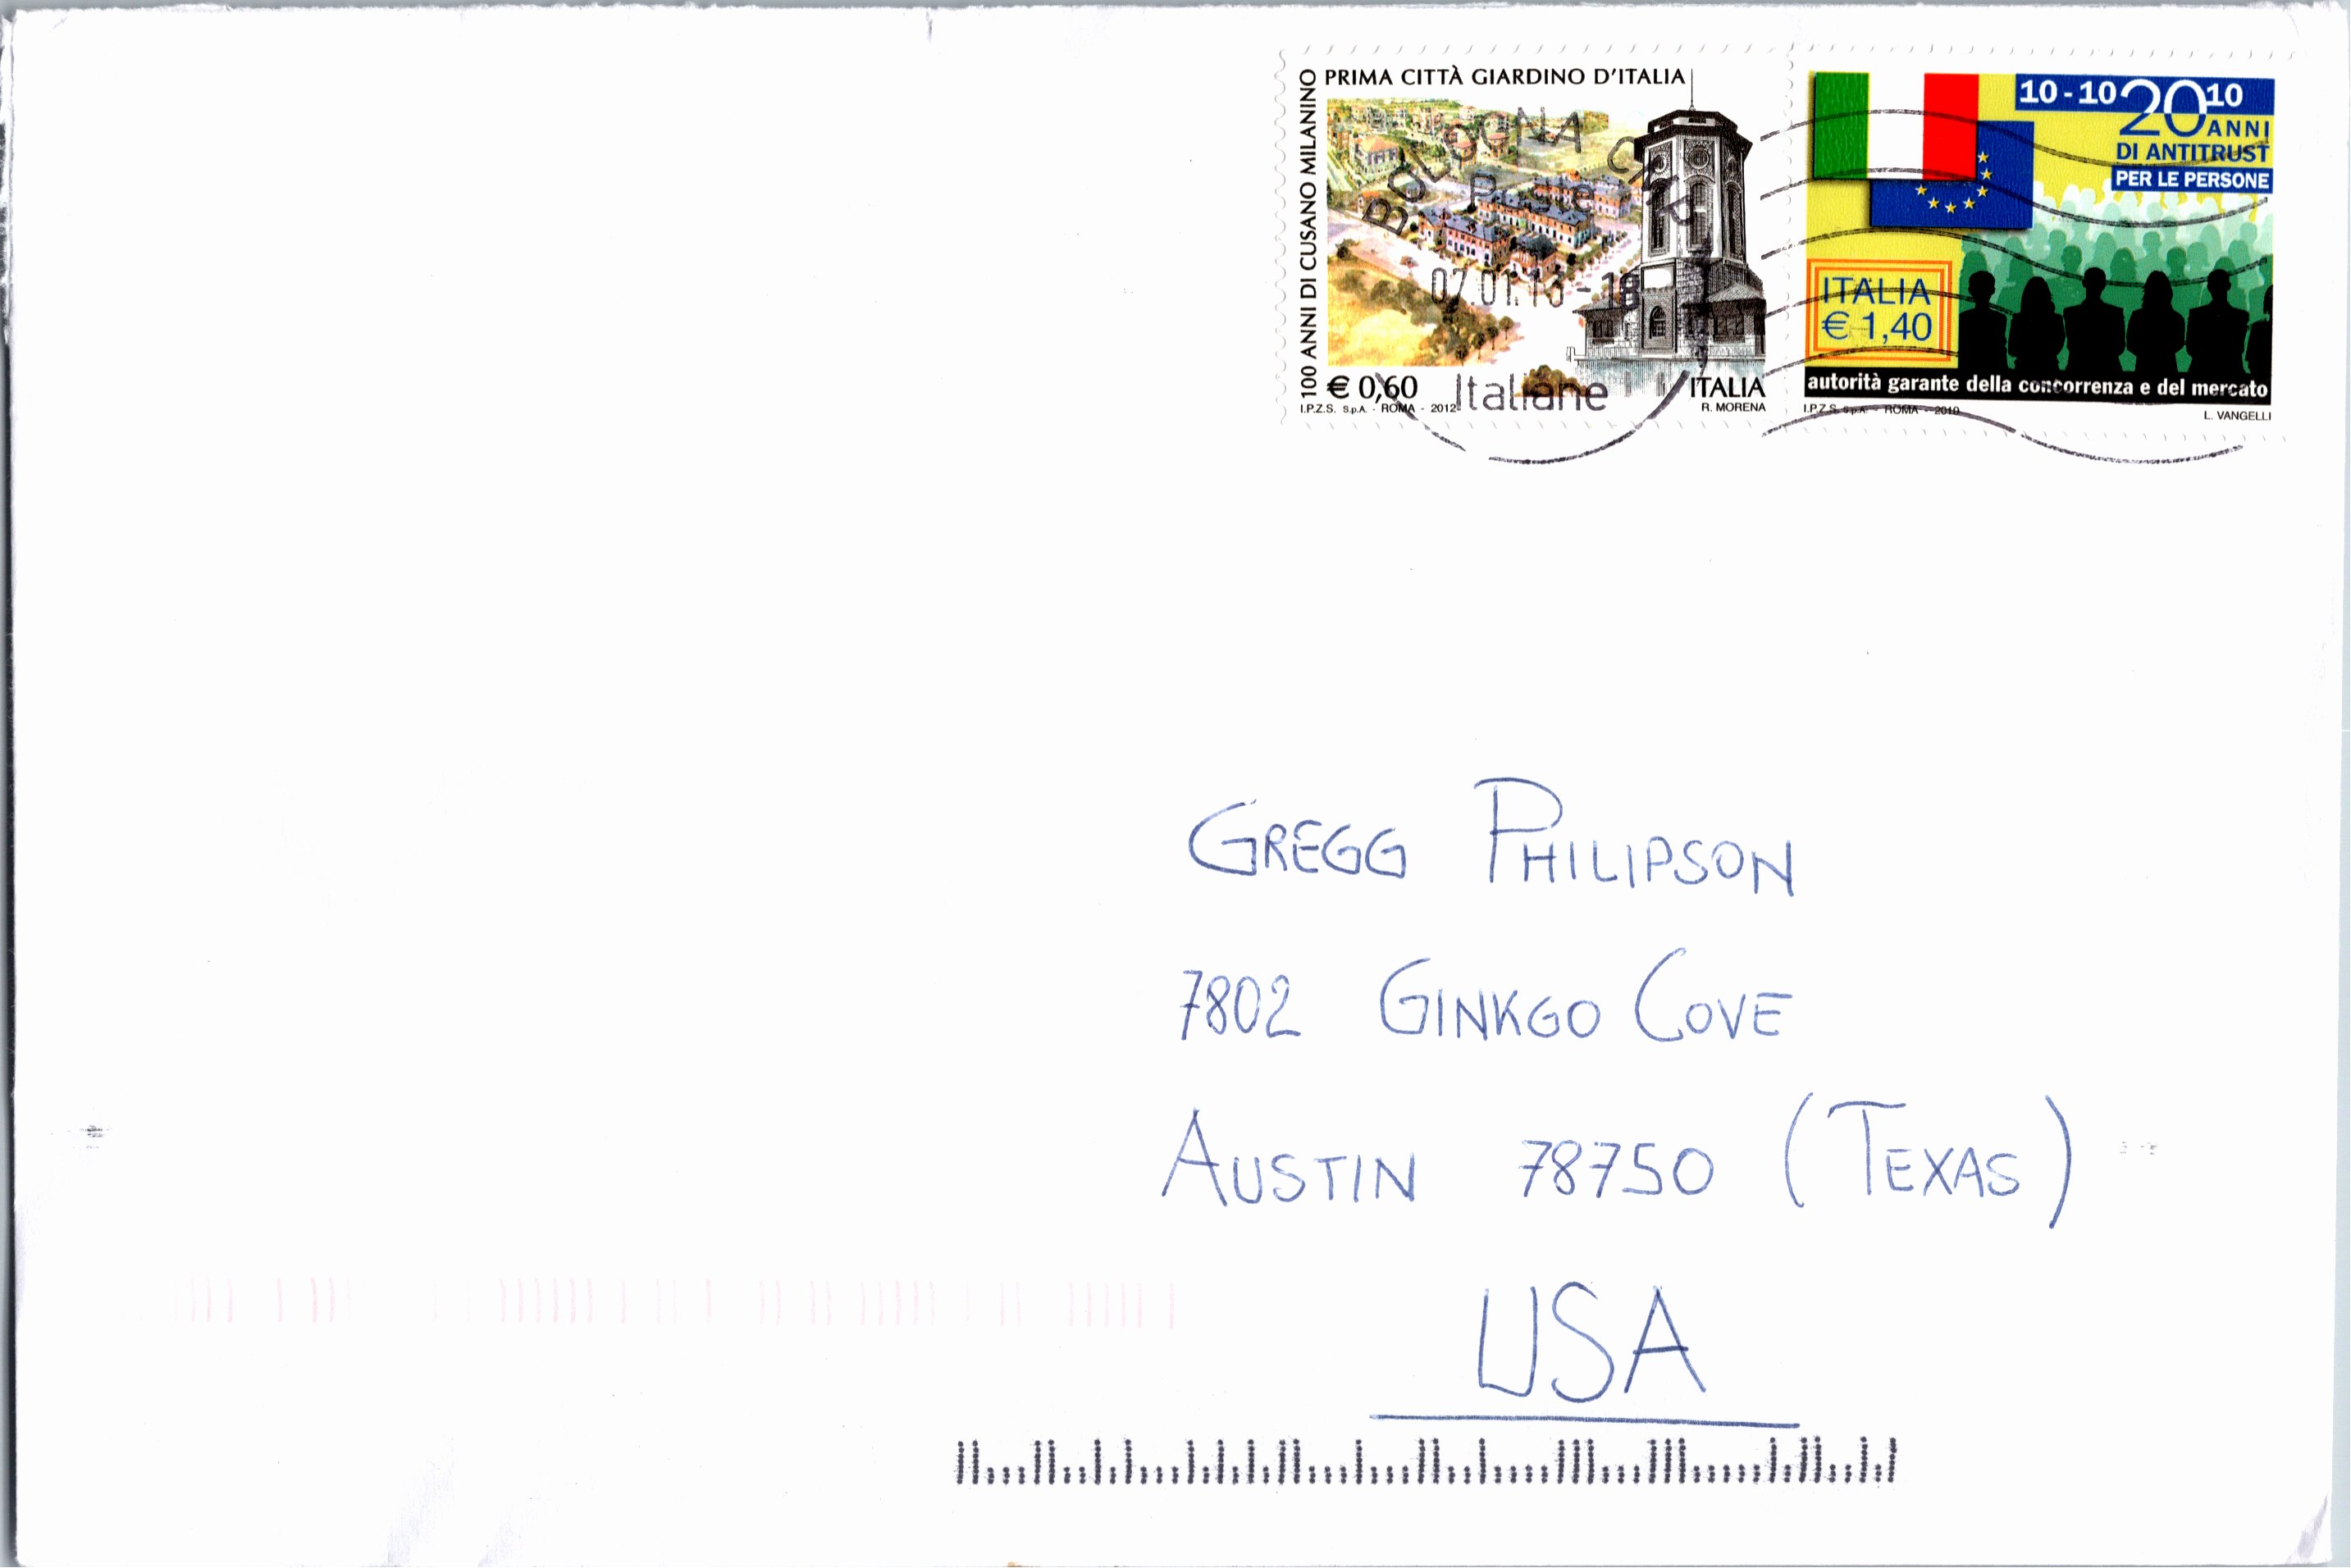 100 ANNI DI CUSANO MILANINO
PRIMA CITTÀ GIARDINO D'ITALIA
€ 0,60
ITALIA
I.P.Z.S. S.p.A. - ROMA - 2012
R. MORENA
BOLOGNA CMP
07.01.13 - 18
Italiane
10-10 2010
20 ANNI
DI ANTITRUST
PER LE PERSONE
ITALIA
€ 1,40
autorità garante della concorrenza e del mercato
I.P.Z.S. S.p.A. - ROMA - 2010
L. VANGELLI
GREGG PHILIPSON
7802 GINKGO COVE
AUSTIN 78750 (TEXAS)
USA